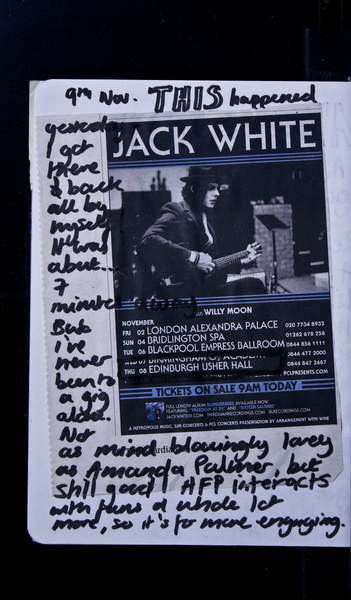 9TH Nov. THIS happened
yesterday
I got
there
& back
all by
myself
It was
about...
7
minutes away
But
I've
never
been to
a gig
alone.
Not
as mind blowingly lovely
as Amanda Palmer, but
still good! AFP interacts
with fans a whole lot
more, so it's far more engaging.
JACK WHITE
WILLY MOON
NOVEMBER
FRI 02 LONDON ALEXANDRA PALACE 020 7734 8932
SUN 04 BRIDLINGTON SPA 01262 678 258
TUE 06 BLACKPOOL EMPRESS BALLROOM 0844 856 1111
BIRMINGHAM O2 ACADEMY 0844 477 2000
THU 08 EDINBURGH USHER HALL 0844 847 2487
PCLPRESENTS.COM
TICKETS ON SALE 9AM TODAY
FULL LENGTH ALBUM BLUNDERBUSS AVAILABLE NOW
FEATURING 'FREEDOM AT 21' AND 'SIXTEEN SALTINES'
JACKWHITEIII.COM THIRDMANRECORDS.COM XLRECORDINGS.COM
A METROPOLIS MUSIC, SJM CONCERTS & PCL CONCERTS PRESENTATION BY ARRANGEMENT WITH WME